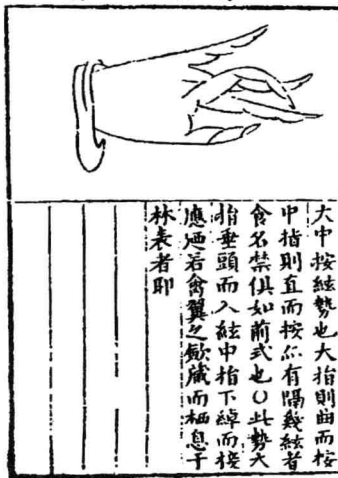 大中按絃勢也大指則曲而按
中指則直而按尒有隔幾絃者
食名禁俱如前式也〇此勢大
指垂頭而入絃中指下綽而接
應迺若禽翼之歛藏而栖息于
林表者即